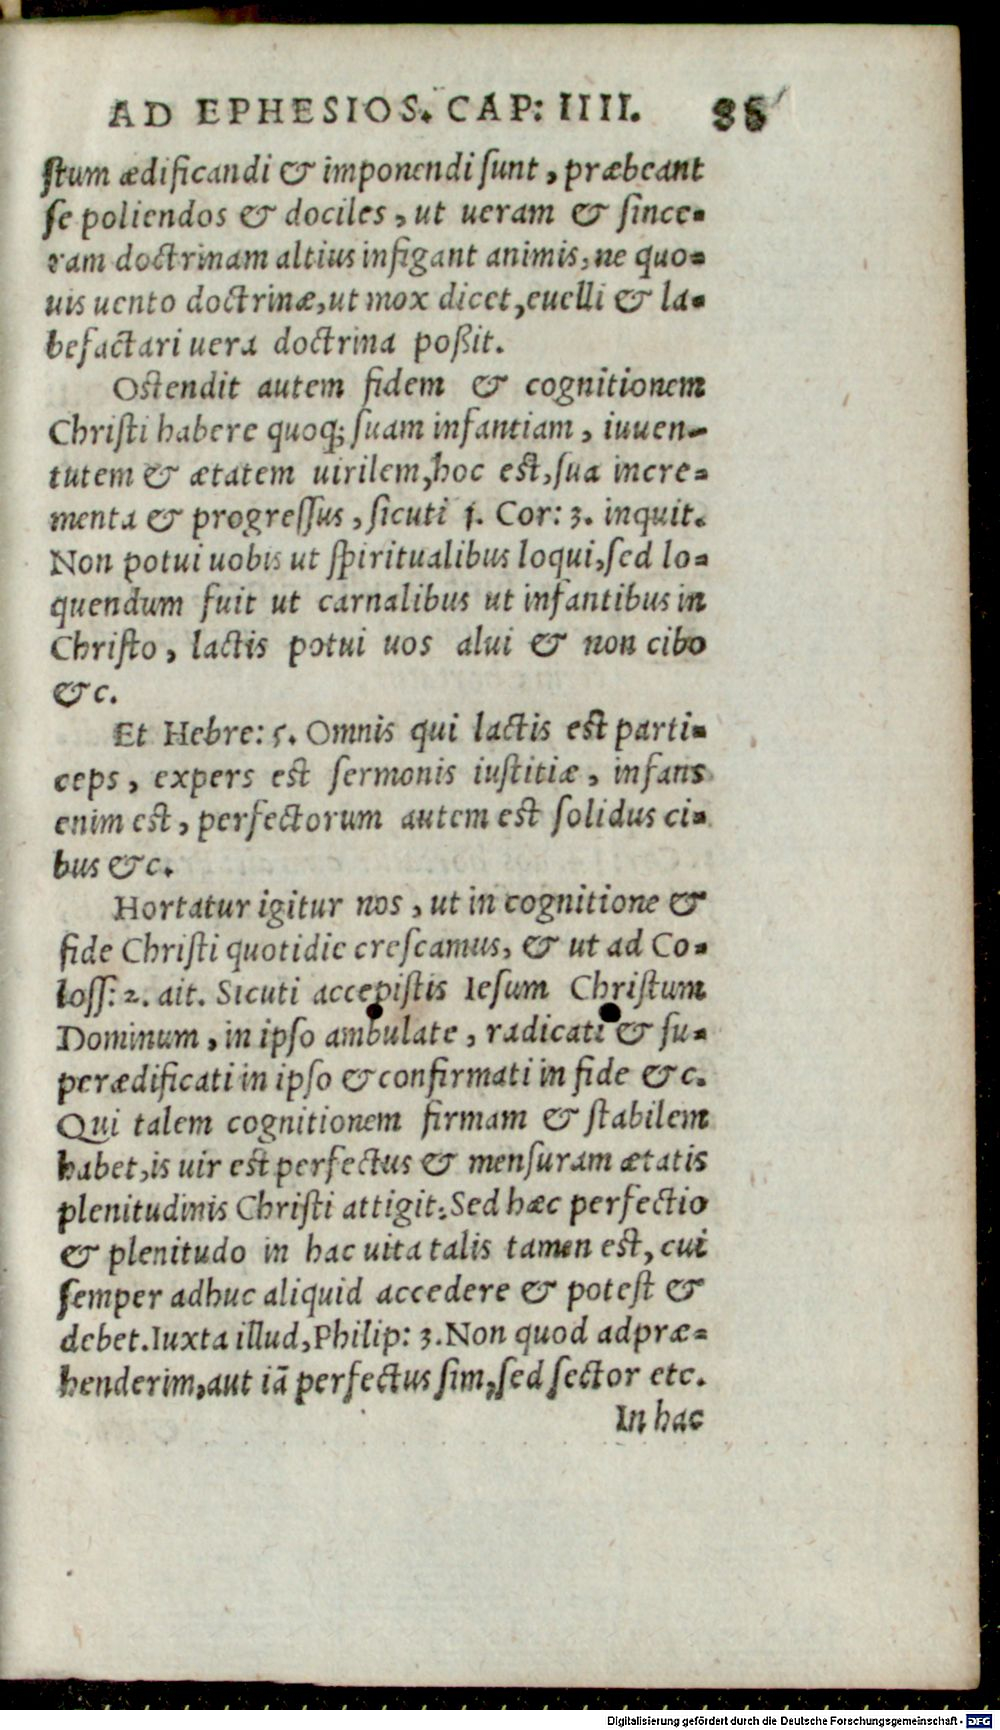 AD EPHESIOS. CAP: IIII. 85
ſtum ædificandi & imponendi ſunt, præbeant
ſe poliendos & dociles, ut ueram & ſince-
ram doctrinam altius infigant animis, ne quo-
uis uento doctrinæ, ut mox dicet, euelli & la-
befactari uera doctrina poßit.
Oſtendit autem fidem & cognitionem
Chriſti habere quoq; ſuam infantiam, iuuen-
tutem & ætatem uirilem, hoc eſt, ſua incre-
menta & progreſſus, ſicuti 1. Cor: 3. inquit.
Non potui uobis ut ſpiritualibus loqui, ſed lo-
quendum fuit ut carnalibus ut infantibus in
Chriſto, lactis potui uos alui & non cibo
&c.
Et Hebre: 5. Omnis qui lactis eſt parti-
ceps, expers eſt ſermonis iuſtitiæ, infans
enim eſt, perfectorum autem eſt ſolidus ci-
bus &c.
Hortatur igitur nos, ut in cognitione &
fide Chriſti quotidie creſcamus, & ut ad Co-
loſſ: 2. ait. Sicuti accepiſtis Ieſum Chriſtum
Dominum, in ipſo ambulate, radicati & ſu-
perædificati in ipſo & confirmati in fide &c.
Qui talem cognitionem firmam & ſtabilem
habet, is uir eſt perfectus & menſuram ætatis
plenitudinis Chriſti attigit: Sed hæc perfectio
& plenitudo in hac uita talis tamen eſt, cui
ſemper adhuc aliquid accedere & poteſt &
debet. Iuxta illud, Philip: 3. Non quod adpræ-
henderim, aut iã perfectus ſim, ſed ſector etc.
In hac
Digitalisierung gefördert durch die Deutsche Forschungsgemeinschaft - DFG